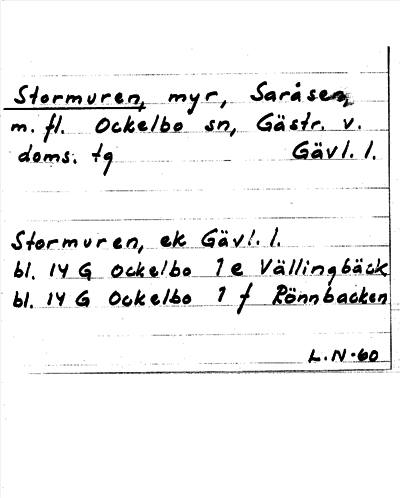 Stormuren, myr, Saråsen,
m. fl. Ockelbo sn, Gästr. v.
doms. tg Gävl. l.
Stormuren, ek Gävl. l.
bl. 14 G Ockelbo 1 e Vällingbäck
bl. 14 G Ockelbo 1 f Rönnbacken
L.N-60